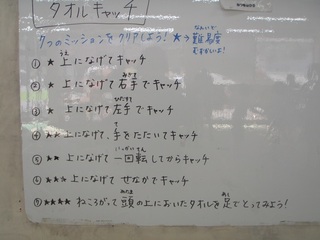 タオルキャッチ
7つのミッションをクリアしよう! ★→難易度
なんいど
むずかしいよ!
① ★ 上になげてキャッチ
うえ
② ★ 上になげて右手でキャッチ
みぎて
③ ★ 上になげて左手でキャッチ
ひだりて
④ ★★ 上になげて、手をたたいてキャッチ
て
⑤ ★★ 上になげて一回転してからキャッチ
いっかいてん
⑥ ★★★ 上になげて せなかでキャッチ
⑦ ★★★★ ねころがって頭の上においたタオルを足でとってみよう!
あたま
あし